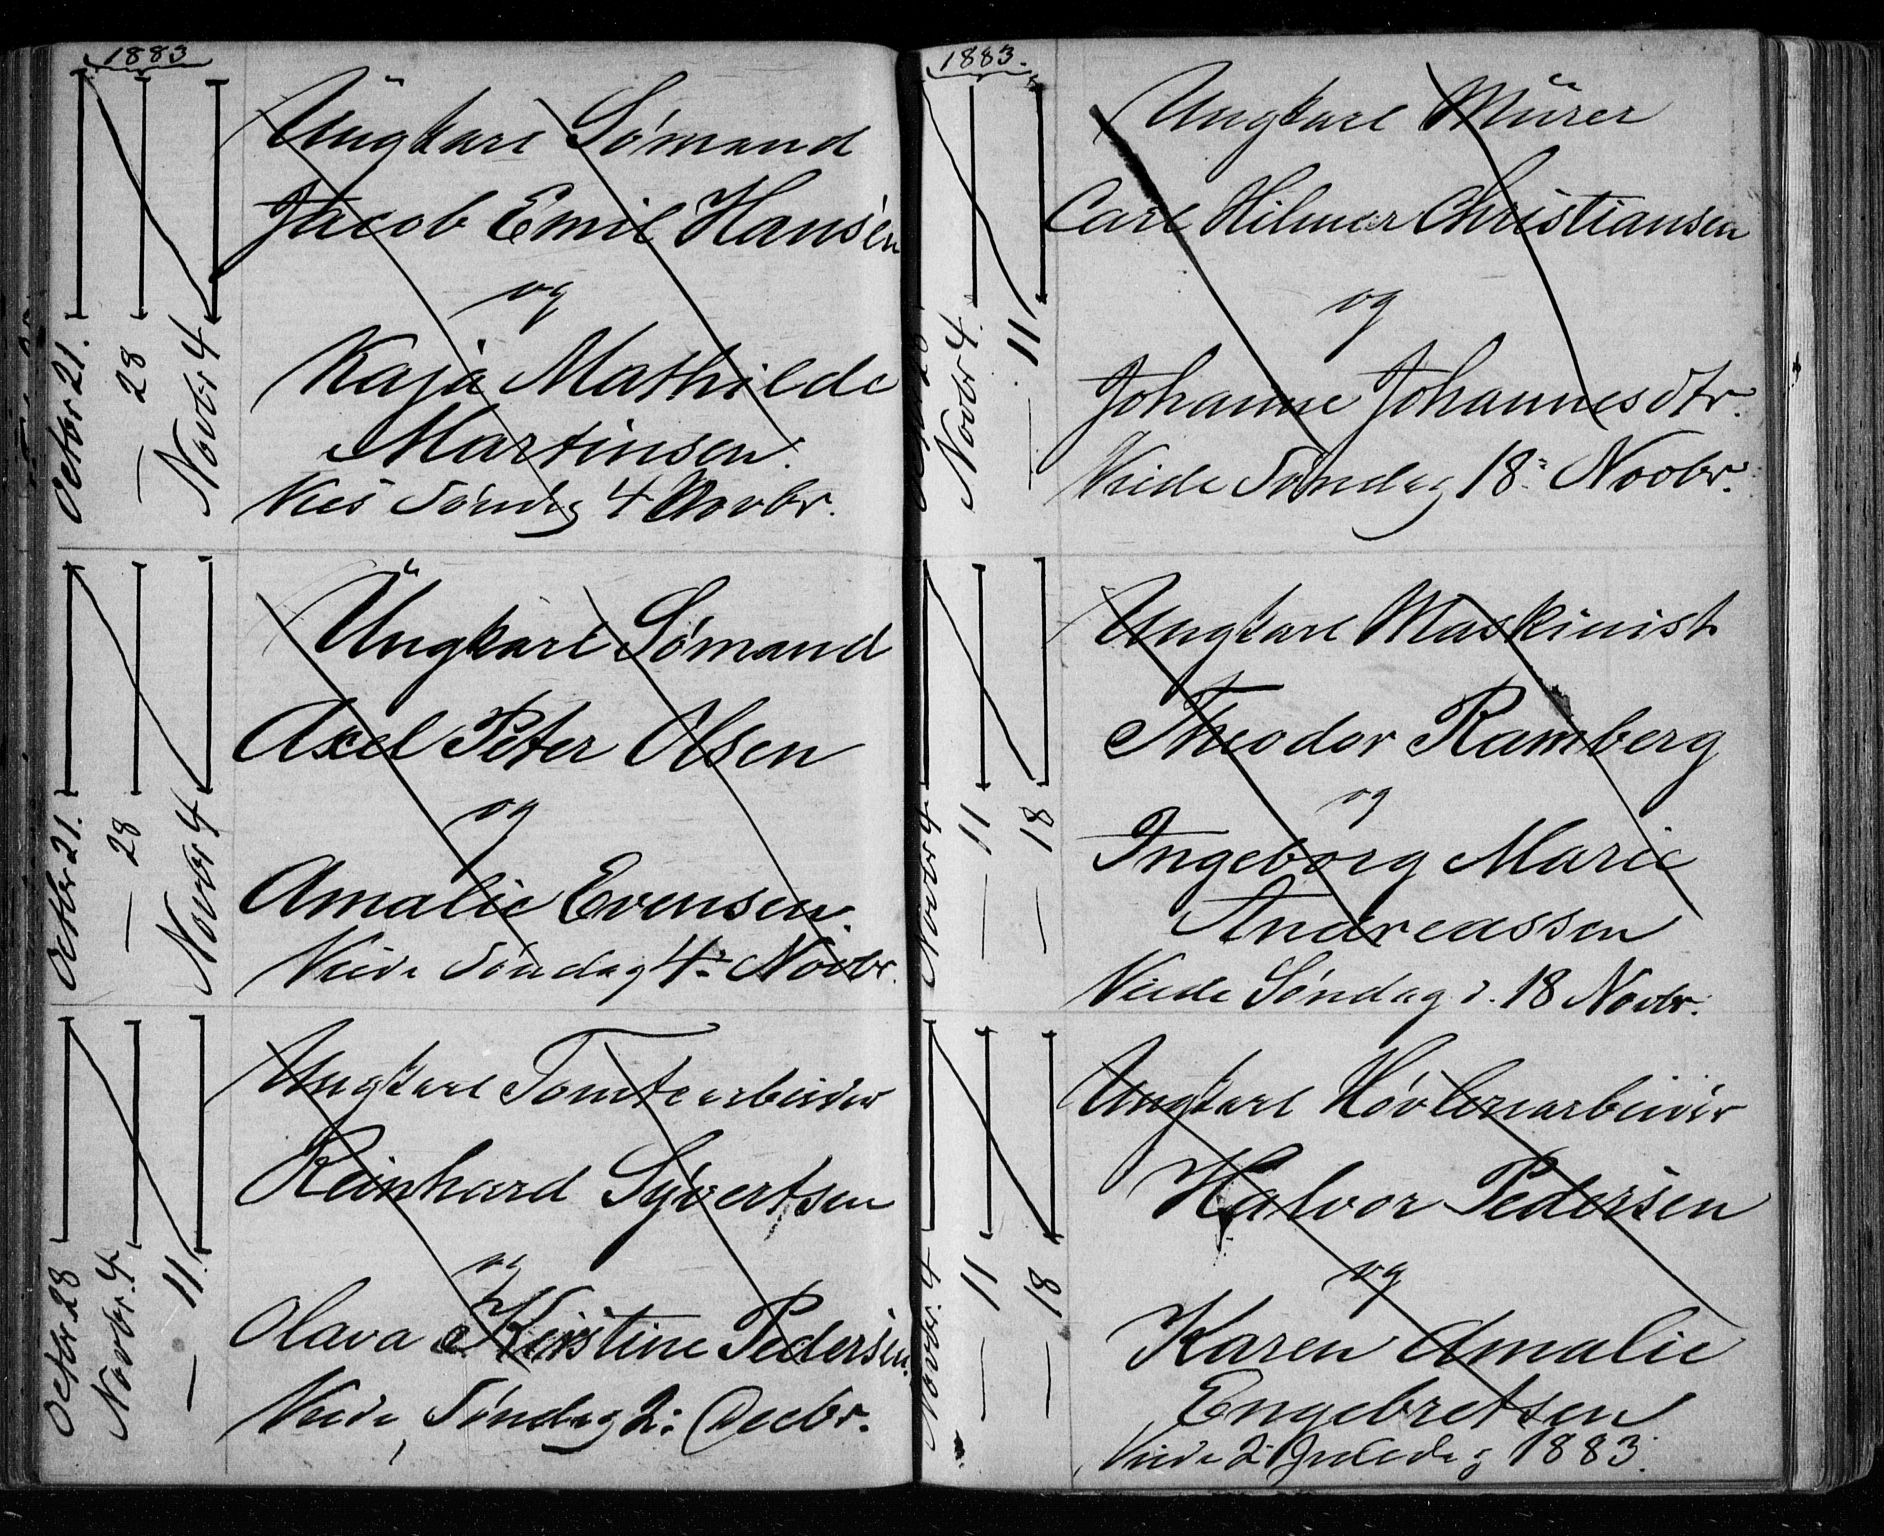 1883
October 21.
— 28
Novbr 4
Ungkarl Sømand
Jacob Emil Hansen
og
Kaja Mathilde
Martinsen.
Vies Søndag 4 Novbr.
Octbr 21.
— 28
Novbr 4
Ungkarl Sømand
Axel Peter Olsen
og
Amalie Evensen
Viede Søndag 4: Novbr.
Octbr 28
Novbr. 4
— 11.
Ungkarl Tomtearbeider
Reinhard Syvertsen
og
Olava Kirstine Pedersen.
Viede Søndag 2: Decbr.
1883.
Novbr 4.
— 11
Ungkarl Murer
Carl Hilmar Christiansen
og
Johanne Johannesdtr.
Viede Søndag 18: Novbr.
Novbr 4
— 11
— 18
Ungkarl Maskinist
Theodor Ramberg
og
Ingeborg Marie
Andreassen
Viede Søndag d. 18 Novbr.
Novbr. 4
— 11
— 18
Ungkarl Høvleriarbeider
Halvor Pedersen
og
Karen Amalie
Engebretsen
Viede 2. Juledag 1883.